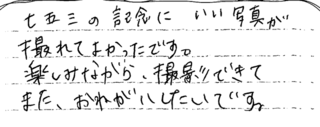 七五三の記念に いい写真が
撮れてよかったです。
楽しみながら、撮影できて
また、おねがいしたいです。